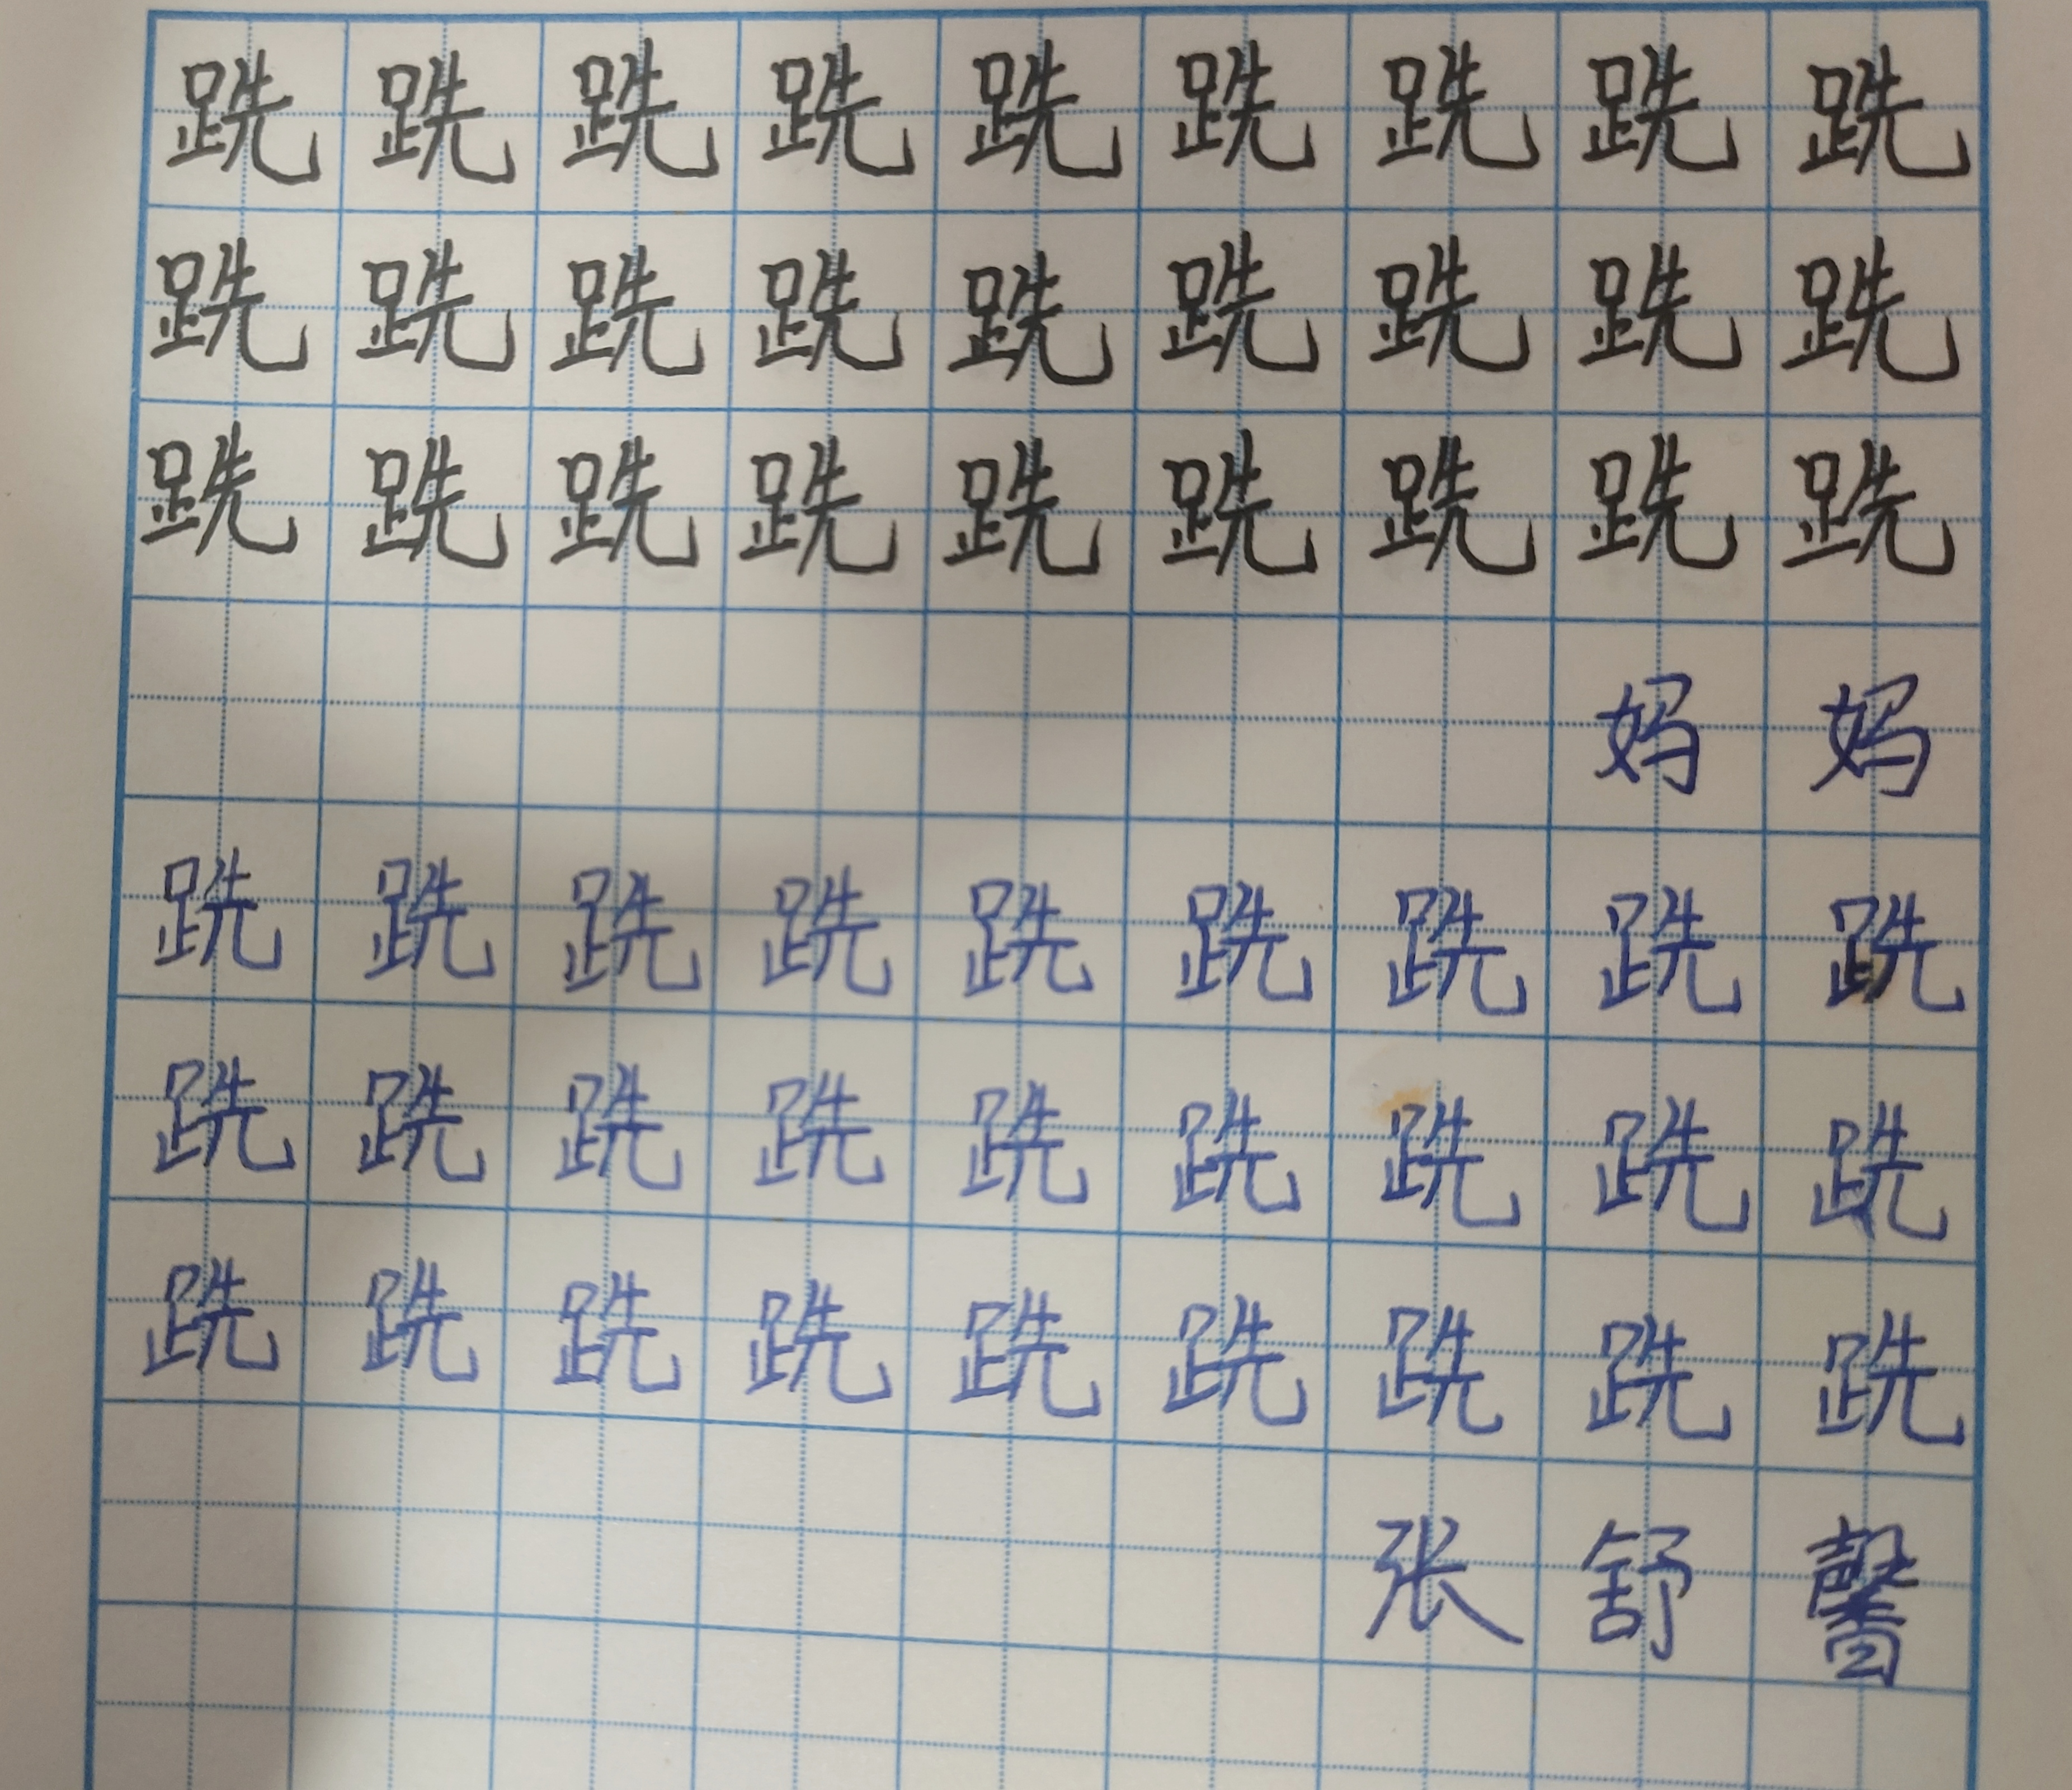 跣跣跣跣跣跣跣跣跣
跣跣跣跣跣跣跣跣跣
跣跣跣跣跣跣跣跣跣
妈妈
跣跣跣跣跣跣跣跣跣
跣跣跣跣跣跣跣跣跣
跣跣跣跣跣跣跣跣跣
张舒馨